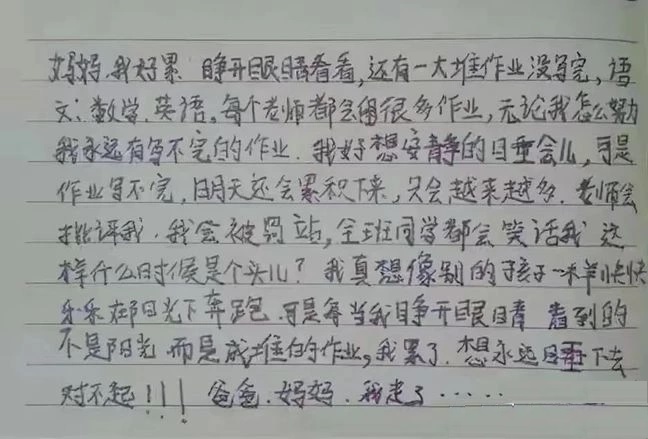 妈妈.我好累 睁开眼睛看看,还有一大堆作业没写完,语
文、数学.英语。每个老师都会留很多作业,无论我怎么努力
我永远有写不完的作业.我好想安静的睡会儿,可是
作业写不完,明天还会累积下来,只会越来越多.老师会
批评我.我会被罚站,全班同学都会笑话我 这
样什么时候是个头儿?我真想像别的孩子一样快快
乐乐在阳光下奔跑.可是每当我睁开眼睛 看到的
不是阳光 而是成堆的作业,我累了.想永远睡下去
对不起!!!爸爸.妈妈.我走了·····